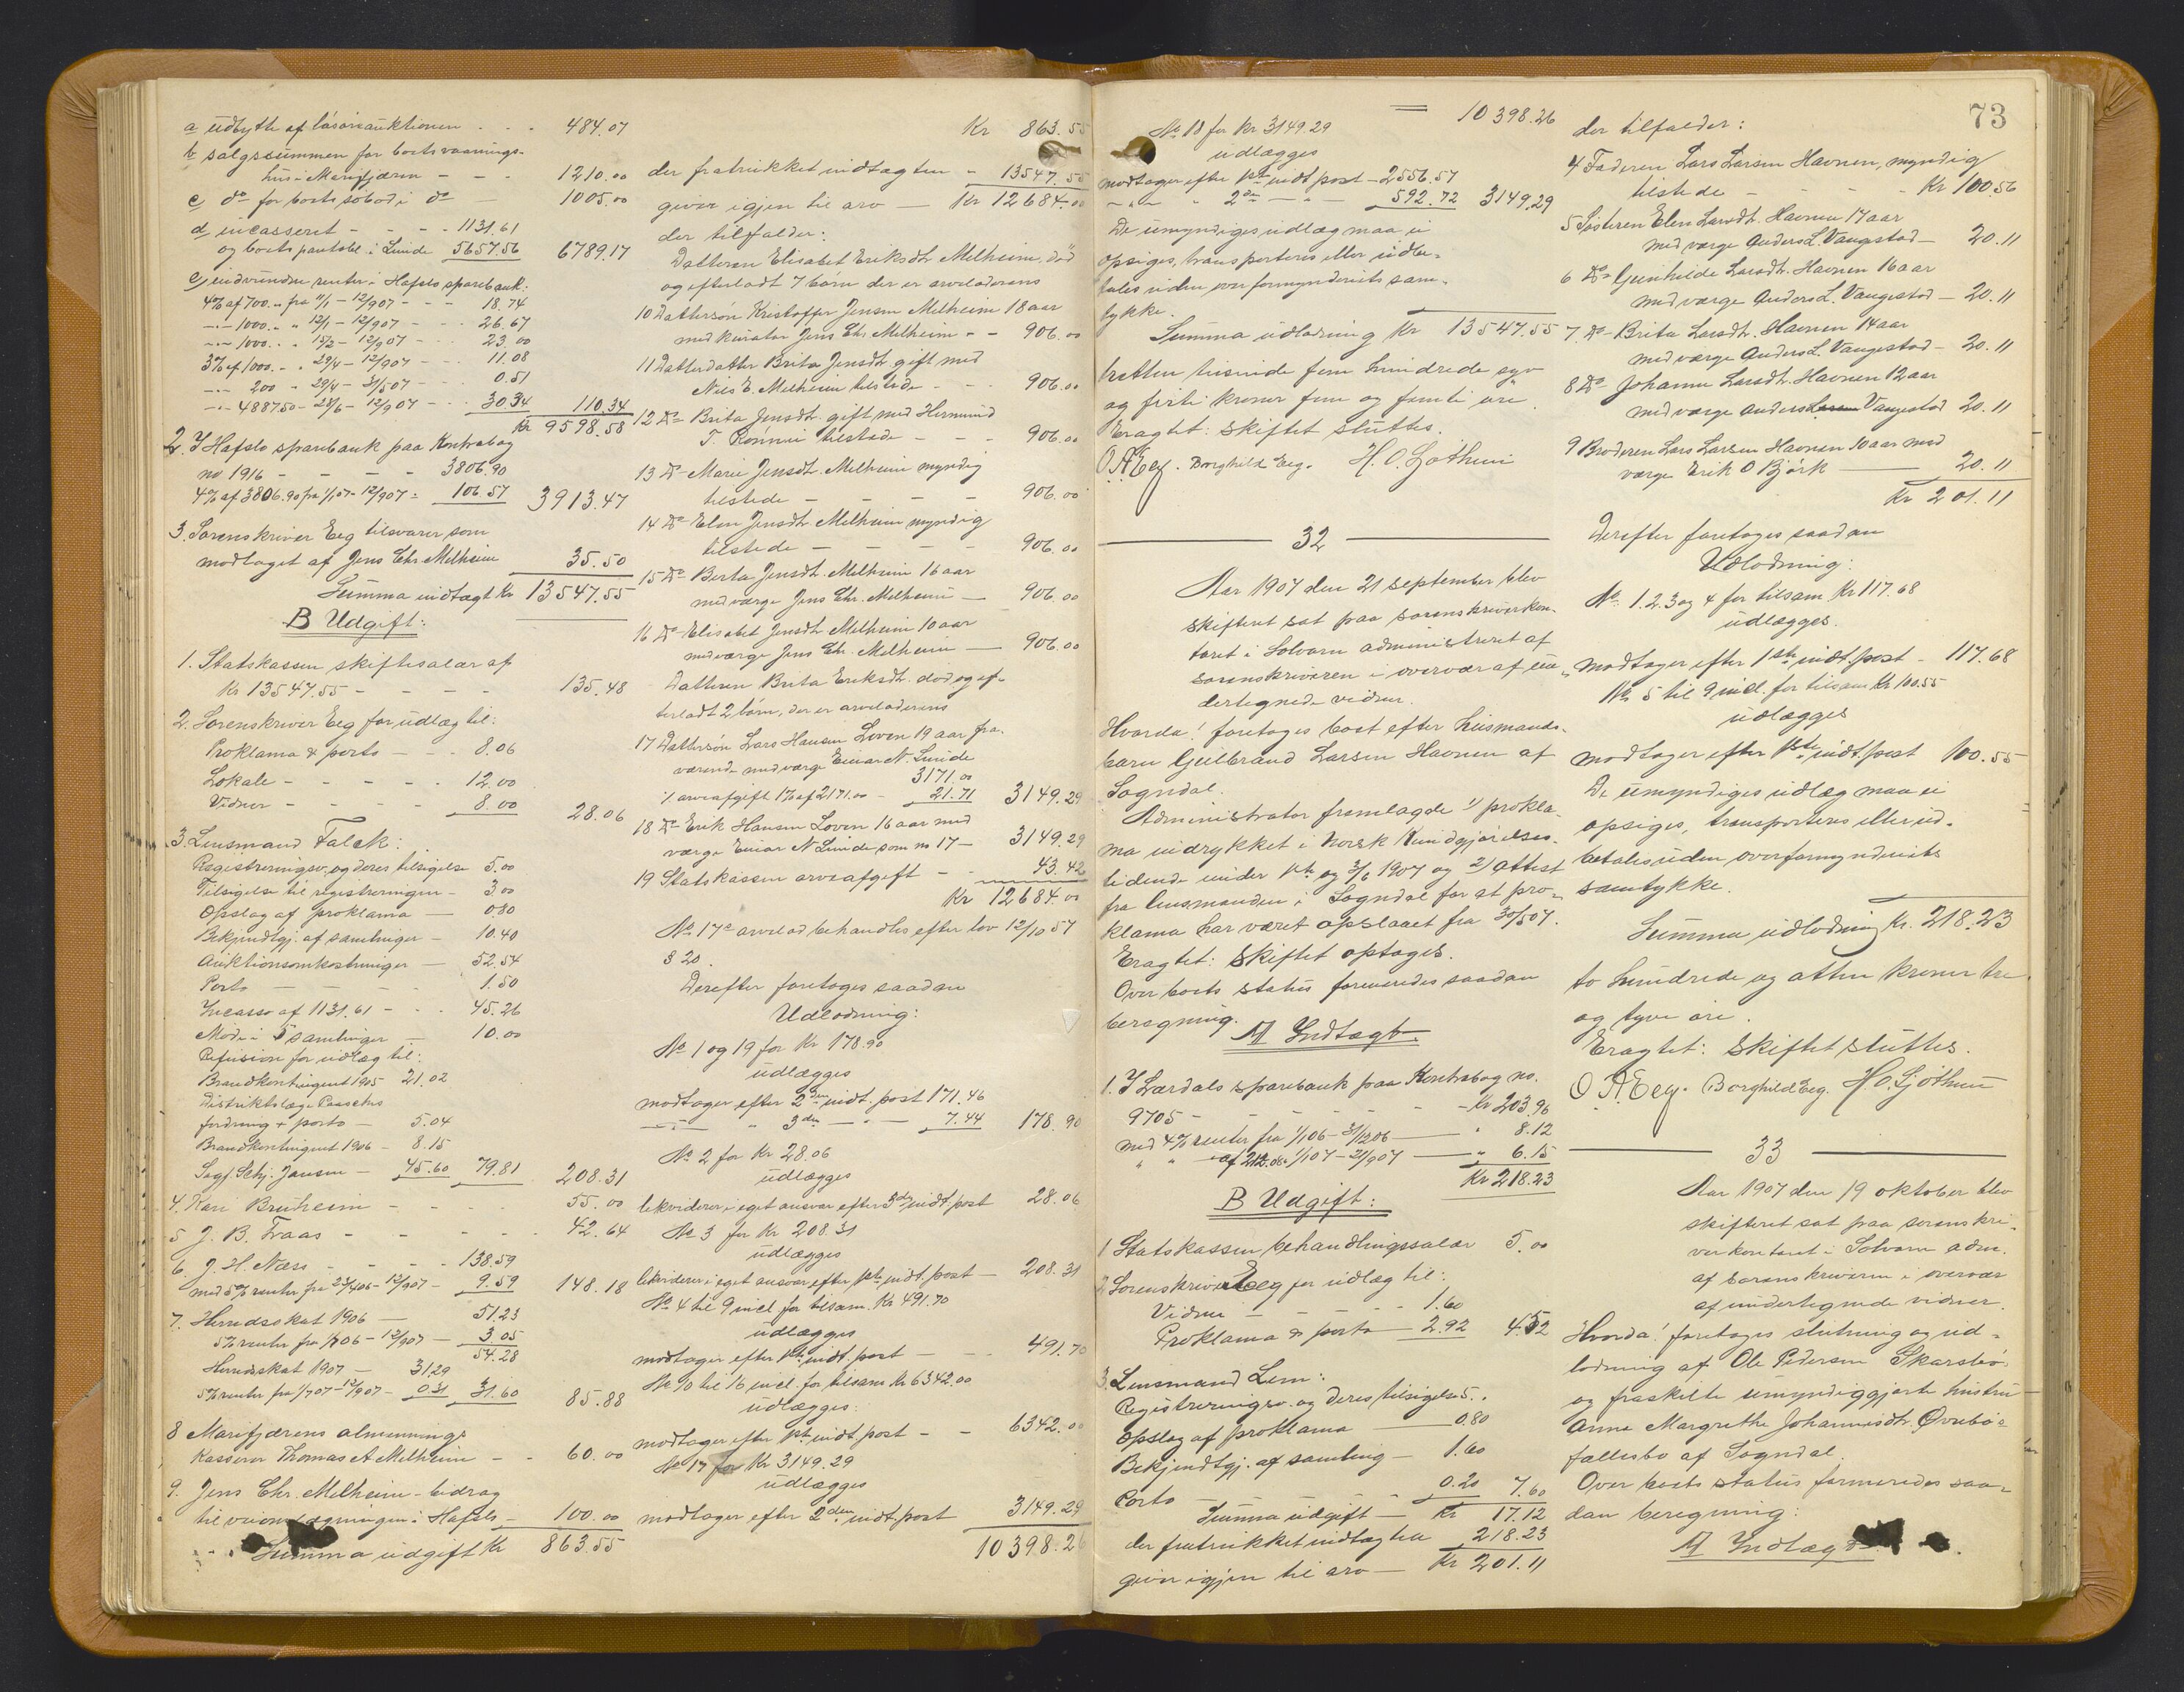 a udbytte af løsøreauktionen - - - 484.07
b salgssummen for boets vaanings-
hus i Marifjæren - - - 1210.00
c do for boets søbod i do - 1005.00
d incasseret - - - - 1131.61
og boets pantobl. i Lunde 5657.56 6789.17
e indvundne renter i Hafslo sparebank:
4% af 700.- fra 1/1 - 12/907 - - - 18.74
-"- 1000.- " 12/1 - 12/907 - - - 26.67
-"- 1000.- " 15/2 - 12/907 - - - 23.00
3% af 1000.- - 29/4 - 12/907 - - - 11.08
-"- 200 " 29/4 - 31/507 - - - 0.51
-"- 4887.50 - 28/6 - 12/907 - - - 30.34 110.34
Kr 9598.58
2. I Hafslo sparebank paa Kontrabog
no 1916 - - - - 3806.90
4% af 3806.90 fra 1/107 - 12/907 - 106.57 3913.47
3. Sorenskriver Eeg tilsvarer som
modtaget af Jens Chr. Melheim 35.50
Summa indtægt Kr 13547.55
B Udgift:
1. Statskassen skiftesalær af
Kr 13547.55 - - - - 135.48
2. Sorenskriver Eeg for udlæg til:
Proklama & porto - - - 8.06
Lokale - - - - - 12.00
Vidner - - - - 8.00 28.06
3. Lensmand Falck:
Registreringsv. og deres tilsigelse 5.00
Tilsigelse til registreringen - 3.00
Opslag af proklama - 0.80
Bekjendtgj. af samlinger - 10.40
Auktionsomkostninger - 52.54
Porto - - - - 1.50
Incasso af 1131.61 - - - 45.26
Møde i 5 samlinger - 10.00
Refusion for udlæg til:
Brandkontingent 1905 21.02
Distriktslæge Paasches
fordring + porto - 5.04
Brandkontingent 1906 - 8.15
Sagf. Schj. Jansen - 45.60 79.81 208.31
4. Kari Bruheim - - - - 55.00
5 J. B. Fraas - - - - - 42.64
6. J. H. Næss - - - - 138.59
med 5% renter fra 23/406 - 12/907 - 9.59 148.18
7. Herredsskat 1906 - 51.23
5% renter fra 1/706 - 12/907 - 3.05
54.28
Herredsskat 1907 - 31.29
5% renter fra 1/707 - 12/907 - 0.31 31.60 85.88
8 Marifjærens almennings
Kasserer Thomas A Melheim - - 60.00
9. Jens Chr. Melheim - bidrag
til veiomlægningen i Hafslo - 100.00
Summa udgift Kr 863.55
Kr 863.55
der fratrukket indtægten - 13547.55
giver igjen til arv - Kr 12684.00
der tilfalder:
Datteren Elisabet Eriksdtr. Melheim, død
og efterladt 7 børn der er arveladerens
10 Dattersøn Kristoffer Jensen Melheim 18 aar
med kurator Jens Chr. Melheim - - 906.00
11 Datterdatter Brita Jensdtr. gift med
Nils E. Melheim tilstede - - 906.00
12 Do Brita Jensdtr. gift med Hermund
T. Rønnei tilstede - - - 906.00
13 Do Marie Jensdtr. Melheim myndig
tilstede - - - - 906.00
14 Do Elen Jensdtr. Melheim myndig
tilstede - - - - 906.00
15 Do Berta Jensdtr. Melheim 16 aar
med værge Jens Chr. Melheim - 906.00
16 Do Elisabet Jensdtr. Melheim 10 aar
med værge Jens Chr. Melheim - 906.00
Datteren Brita Eriksdtr. død og ef-
terladt 2 børn, der er arveladerens
17 Dattersøn Lars Hansen Loven 19 aar fra-
værende med værge Einar N. Lunde
3171.00
/ arveafgift 1% af 2171.00 - 21.71 3149.29
18 Do Erik Hansen Loven 16 aar med
værge Einar N Lunde som no 17 - 3149.29
19 Statskassen arveafgift - - 43.42
Kr 12684.00
No 17s arvelod behandles efter lov 12/10 57
§ 20.
Derefter foretoges saadan
Udlodning:
No 1 og 19 for Kr 178.90
udlægges
modtager efter 2den indt. post 171.46
-"- " 3die -"- 7.44 178.90
No 2 for Kr 28.06
udlægges
likviderer i eget ansvar efter 3die indt. post 28.06
No 3 for Kr 208.31
udlægges
likviderer i eget ansvar efter 1ste indt. post - 208.31
No 4 til 9 incl. for tilsam. Kr 491.70
udlægges
modtager efter 1ste indt. post - - 491.70
No 10 til 16 incl. for tilsam Kr 6342.00
udlægges:
modtager efter 1ste indt. post - - 6342.00
No 17 for Kr 3149.29
udlægges
modtager efter 2den indt. post 3149.29
10398.26
= 10398.26
No 18 for Kr 3149.29
udlægges
modtager efter 1ste indt post - 2556.57
-"- " 2den -"- 592.72 3149.29
De umyndiges udlæg maa ei
opsiges, transporteres eller udbe-
tales uden overformynderiets sam-
tykke.
Summa udlodning Kr 13547.55
tretten tusinde fem hundrede syv
og førti kroner fem og femti øre.
Eragtet: skiftet sluttes.
O. A. Eeg. Borghild Eeg. H. O. Gjøthun
32
Aar 1907 den 21 september blev
skifteret sat paa sorenskriverkon-
toret i Solvorn administreret af
sorenskriveren i overvær af un-
dertegnede vidner.
Hvorda! foretoges boet efter husmands-
barn Gulbrand Larsen Havnen af
Sogndal.
Administrator fremlagde 1) prokla-
ma indrykket i Norsk Kundgjørelses-
tidende under 1ste og 3/6 1907 og 2) attest
fra lensmanden i Sogndal for at pro-
klama har været opslaaet fra 30/507.
Eragtet: Skiftet optages.
Over boets status formeredes saadan
beregning.
A Indtægt.
1. I Lærdals sparebank paa Kontrabog no.
9705 - - - - - - Kr 203.96
med 4% renter fra 1/106 - 31/1206 - " 8.12
" " af 212.08 1/107 - 21/907 - " 6.15
Kr 218.23
B Udgift:
1 Statskassen behandlingssalær 5.00
2 Sorenskriver Eeg for udlæg til:
Vidner - - - - 1.60
Proklama & porto - 2.92 4.52
3. Lensmand Lem:
Registreringsv. og deres tilsigelse 5. "
Opslag af proklama - 0.80
Bekjendtgj. af samling - 1.60
Porto - - - 0.20 7.60
Summa udgift - Kr 17.12
der fratrukket indtægten 218.23
giver igjen til arv - Kr 201.11
73
der tilfalder:
4 Faderen Lars Larsen Havnen, myndig
tilstede - - - - Kr 100.56
5 Søsteren Elen Larsdtr. Havnen 17 aar
med værge Anders L. Vangestad - 20.11
6 Do Gunhilde Larsdtr. Havnen 16 aar
med værge Anders L. Vangestad - 20.11
7. Do Brita Larsdtr. Havnen 14 aar
med værge Anders L. Vangestad - 20.11
8 Do Johanne Larsdtr. Havnen 12 aar
med værge Anders Larsen Vangestad 20.11
9 Broderen Lars Larsen Havnen 10 aar med
værge Erik O Bjørk - 20.11
Kr 201.11
Derefter foretoges saadan
Udlodning:
No. 1.2.3 og 4 for tilsam. Kr 117.68
udlægges.
modtager efter 1ste indt. post - 117.68
No 5 til 9 incl. for tilsam Kr 100.55
udlægges
modtager efter 1ste indt. post 100.55
De umyndiges udlæg maa ei
opsiges, transporteres eller ud-
betales uden overformynderiets
samtykke.
Summa udlodning Kr. 218.23
to hundrede og atten kroner tre
og tyve øre.
Eragtet: skiftet sluttes.
O A Eeg. Borghild Eeg. H. O. Gjøthun
33
Aar 1907 den 19 oktober blev
skifteret sat paa sorenskri-
verkontoret i Solvorn adm.
af sorenskriveren i overvær
af undertegnede vidner.
Hvorda! foretoges slutning og ud-
lodning af Ole Pedersen Skarsbø
og fraskilte umyndiggjorte hustru
Anna Margrethe Johannesdtr. Øvrebø's
fællesbo af Sogndal.
Over boets status formeredes saa-
dan beregning:
A Indtægt